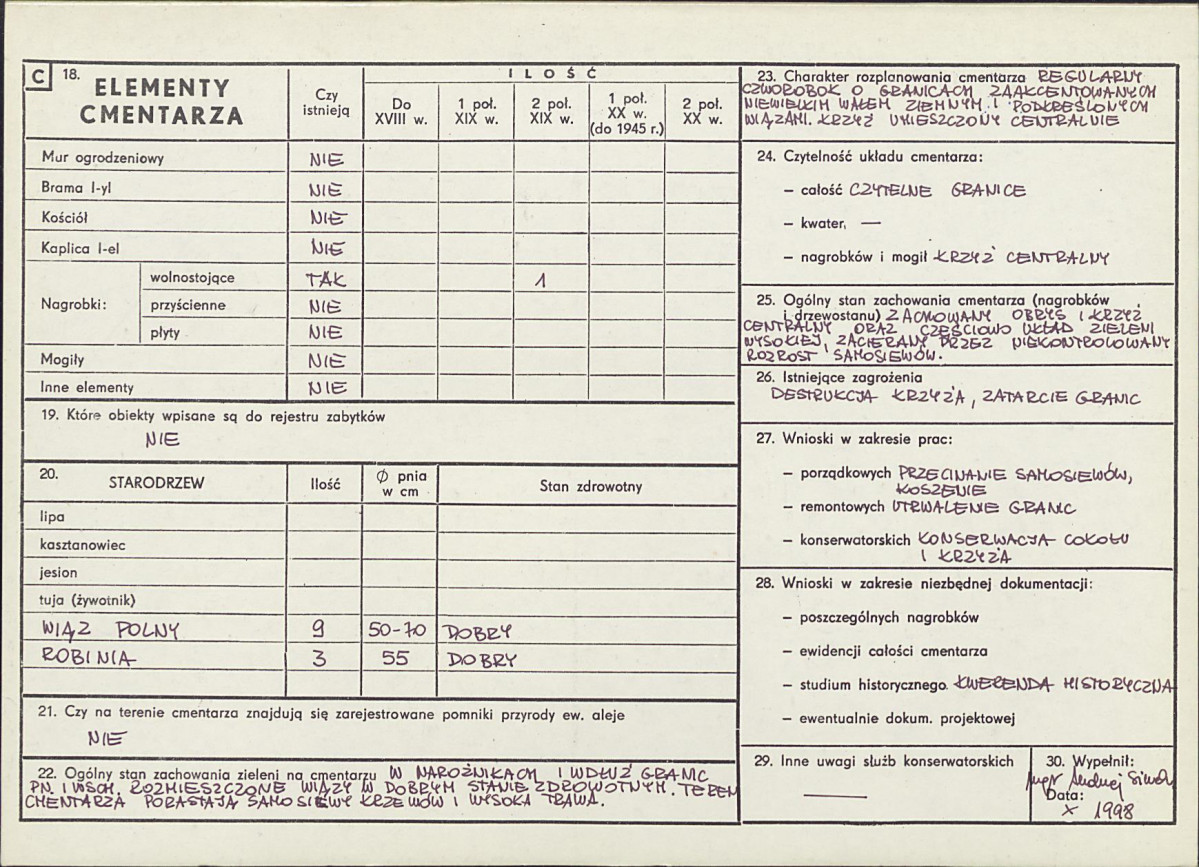 C 18. ELEMENTY CMENTARZA
Czy istnieją
ILOŚĆ
Do XVIII w.
1 poł. XIX w.
2 poł. XIX w.
1 poł. XX w. (do 1945 r.)
2 poł. XX w.
Mur ogrodzeniowy NIE
Brama l-yl NIE
Kościół NIE
Kaplica l-el NIE
Nagrobki:
wolnostojące TAK 1
przyścienne NIE
płyty NIE
Mogiły NIE
Inne elementy NIE
19. Które obiekty wpisane są do rejestru zabytków
NIE
20. STARODRZEW Ilość Ø pnia w cm Stan zdrowotny
lipa
kasztanowiec
jesion
tuja (żywotnik)
WIĄZ POLNY 9 50-70 DOBRY
ROBINIA 3 55 DOBRY
21. Czy na terenie cmentarza znajdują się zarejestrowane pomniki przyrody ew. aleje
NIE
22. Ogólny stan zachowania zieleni na cmentarzu W NAROŻNIKACH I WDŁUŻ GRANIC
PN. I WSCH. ROZMIESZCZONE WIĄZY W DOBRYM STANIE ZDROWOTNYM. TEREN
CMENTARZA PORASTAJĄ SAMOSIEWY KRZEWÓW I WYSOKA TRAWA.
23. Charakter rozplanowania cmentarza REGULARNY
CZWOROBOK O GRANICACH ZAAKCENTOWANYCH
NIEWIELKIM WAŁEM ZIEMNYM I PODKREŚLONYCH
WIĄZAMI. KRZYŻ UMIESZCZONY CENTRALNIE
24. Czytelność układu cmentarza:
– całość CZYTELNE GRANICE
– kwater, —
– nagrobków i mogił KRZYŻ CENTRALNY
25. Ogólny stan zachowania cmentarza (nagrobków
i drzewostanu) ZACHOWANY OBRYS I KRZYŻ
CENTRALNY ORAZ CZĘŚCIOWO UKŁAD ZIELENI
WYSOKIEJ, ZACIERANY PRZEZ NIEKONTROLOWANY
ROZROST SAMOSIEWÓW.
26. Istniejące zagrożenia
DESTRUKCJA KRZYŻA, ZATARCIE GRANIC
27. Wnioski w zakresie prac:
– porządkowych PRZECINANIE SAMOSIEWÓW,
KOSZENIE
– remontowych UTRWALENIE GRANIC
– konserwatorskich KONSERWACJA COKOŁU
I KRZYŻA
28. Wnioski w zakresie niezbędnej dokumentacji:
– poszczególnych nagrobków
– ewidencji całości cmentarza
– studium historycznego. KWERENDA HISTORYCZNA
– ewentualnie dokum. projektowej
29. Inne uwagi służb konserwatorskich
—
30. Wypełnił:
mgr Andrzej
Data:
X 1998